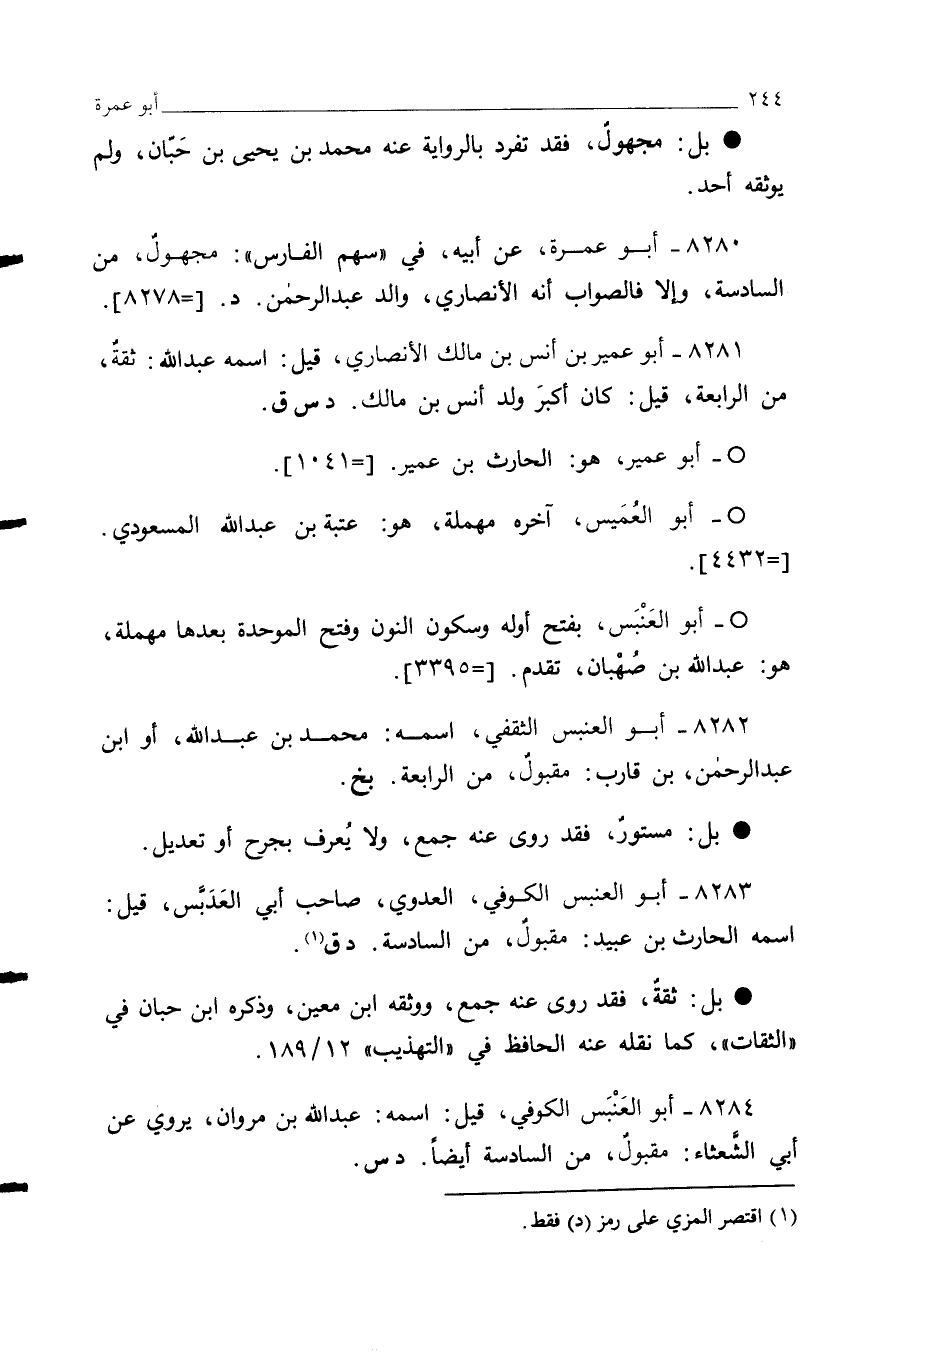 ٢٤٤ أبو عمرة
● بل: مجهولٌ، فقد تفرد بالرواية عنه محمد بن يحيى بن حَبّان، ولم
يوثقه أحد.
٨٢٨٠ - أبـو عمـرة، عن أبيه، في «سهم الفـارس»: مجهـولٌ، من
السادسة، وإلا فالصواب أنه الأنصاري، والد عبدالرحمٰن. د. [=٨٢٧٨].
٨٢٨١ - أبو عمير بن أنس بن مالك الأنصاري، قيل: اسمه عبدالله: ثقةٌ،
من الرابعة، قيل: كان أكبرَ ولد أنس بن مالك. د س ق.
○ - أبو عمير، هو: الحارث بن عمير. [=١٠٤١].
○ - أبو العُمَيس، آخره مهملة، هو: عتبة بن عبدالله المسعودي.
[=٤٤٣٢].
○ - أبو العَنْبَس، بفتح أوله وسكون النون وفتح الموحدة بعدها مهملة،
هو: عبدالله بن صُهْبان، تقدم. [=٣٣٩٥].
٨٢٨٢ - أبـو العنبس الثقفي، اسمـه: محمـد بن عبـدالله، أو ابن
عبدالرحمٰن، بن قارب: مقبولٌ، من الرابعة. بخ.
● بل: مستورٌ، فقد روى عنه جمع، ولا يُعرف بجرح أو تعديل.
٨٢٨٣ - أبـو العنبس الكـوفي، العدوي، صاحب أبي العَدَبَّس، قيل:
اسمه الحارث بن عبيد: مقبولٌ، من السادسة. د ق(١).
● بل: ثقةٌ، فقد روى عنه جمع، ووثقه ابن معين، وذكره ابن حبان في
«الثقات»، كما نقله عنه الحافظ في «التهذيب» ١٨٩/١٢.
٨٢٨٤ - أبو العَنْبَس الكوفي، قيل: اسمه: عبدالله بن مروان، يروي عن
أبي الشَّعثاء: مقبولٌ، من السادسة أيضاً. د س.
(١) اقتصر المزي على رمز (د) فقط.